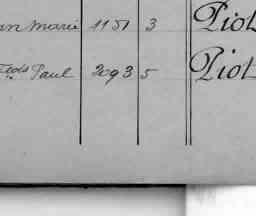 an Marie 1151 3 Piot
Fçois Paul 2093 5 Piot